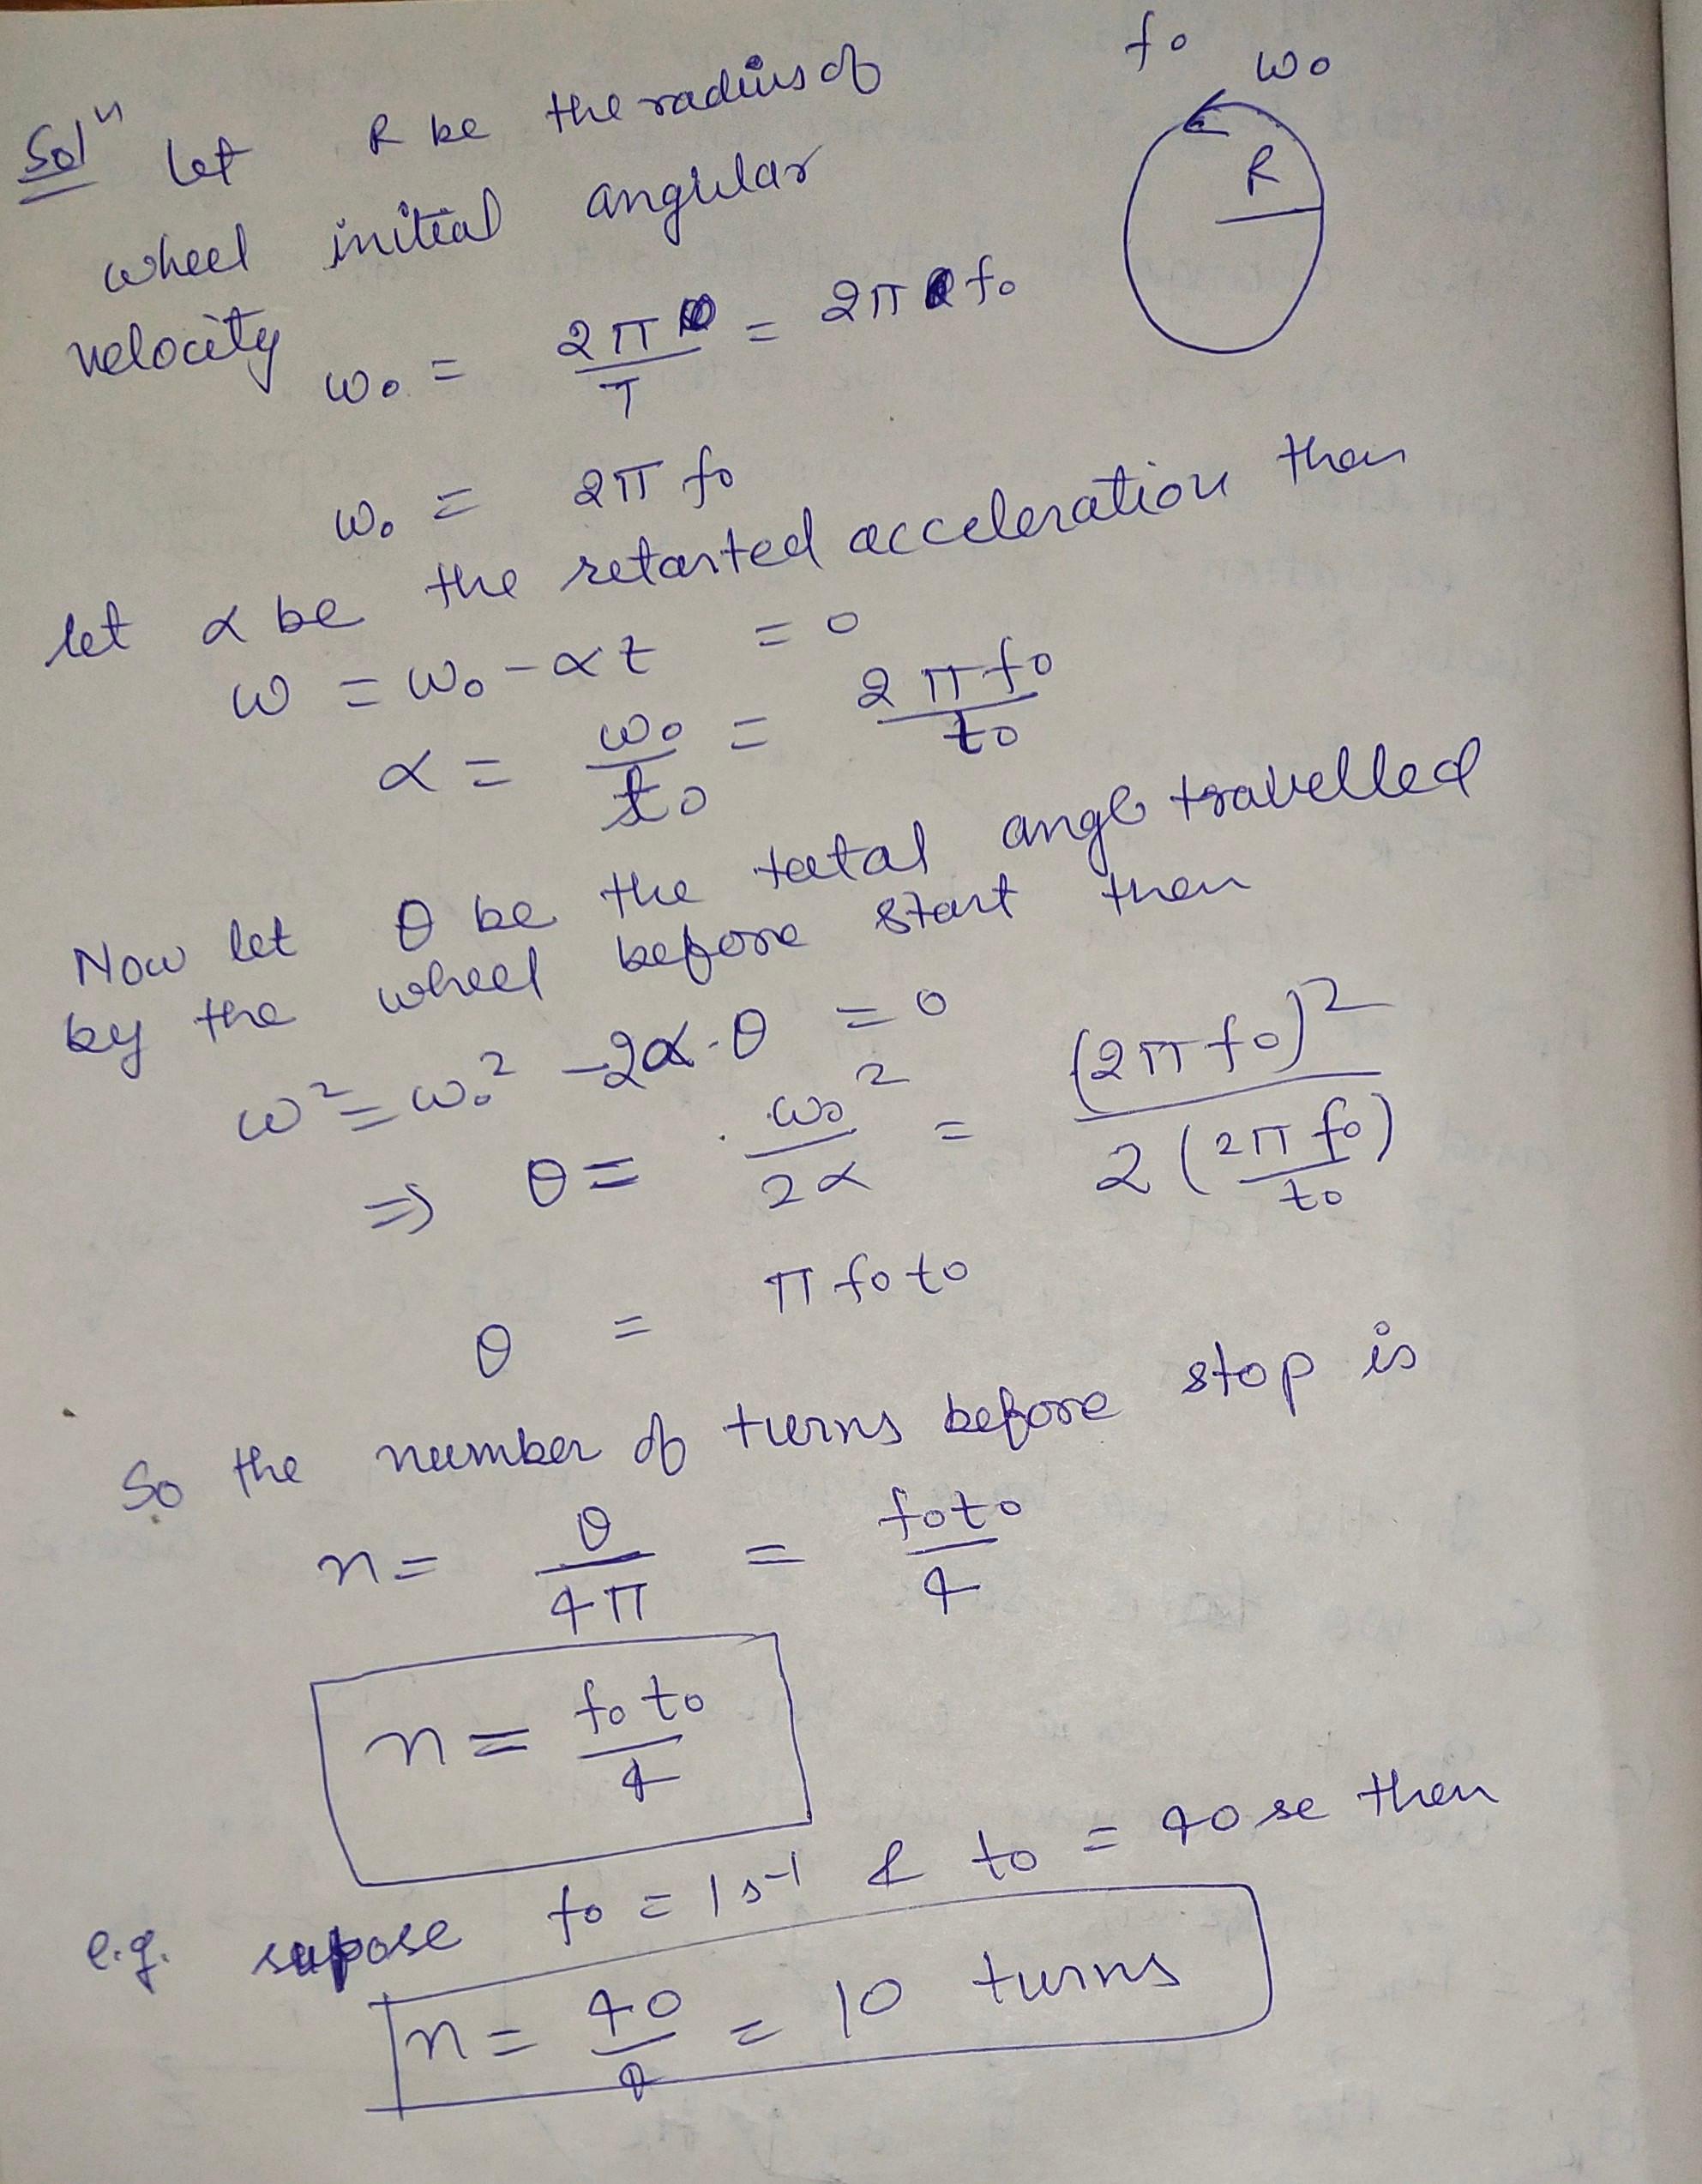 f₀ ω₀
Solⁿ let R be the radius of
R
wheel initial angular
velocity ω₀ = 2π/T = 2π f₀
ω₀ = 2π f₀
let α be the retarted acceleration then
ω = ω₀ - αt = 0
α = ω₀/t₀ = 2πf₀/t₀
Now let θ be the total angle travelled
by the wheel before start then
ω² = ω₀² - 2α·θ = 0
⇒ θ = ω₀²/2α = (2πf₀)²/2(2πf₀/t₀)
θ = π f₀ t₀
So the number of turns before stop is
n = θ/4π = f₀t₀/4
n = f₀t₀/4
e.g. supose f₀ = 1 s⁻¹ & t₀ = 40 se then
n = 40/4 = 10 turns